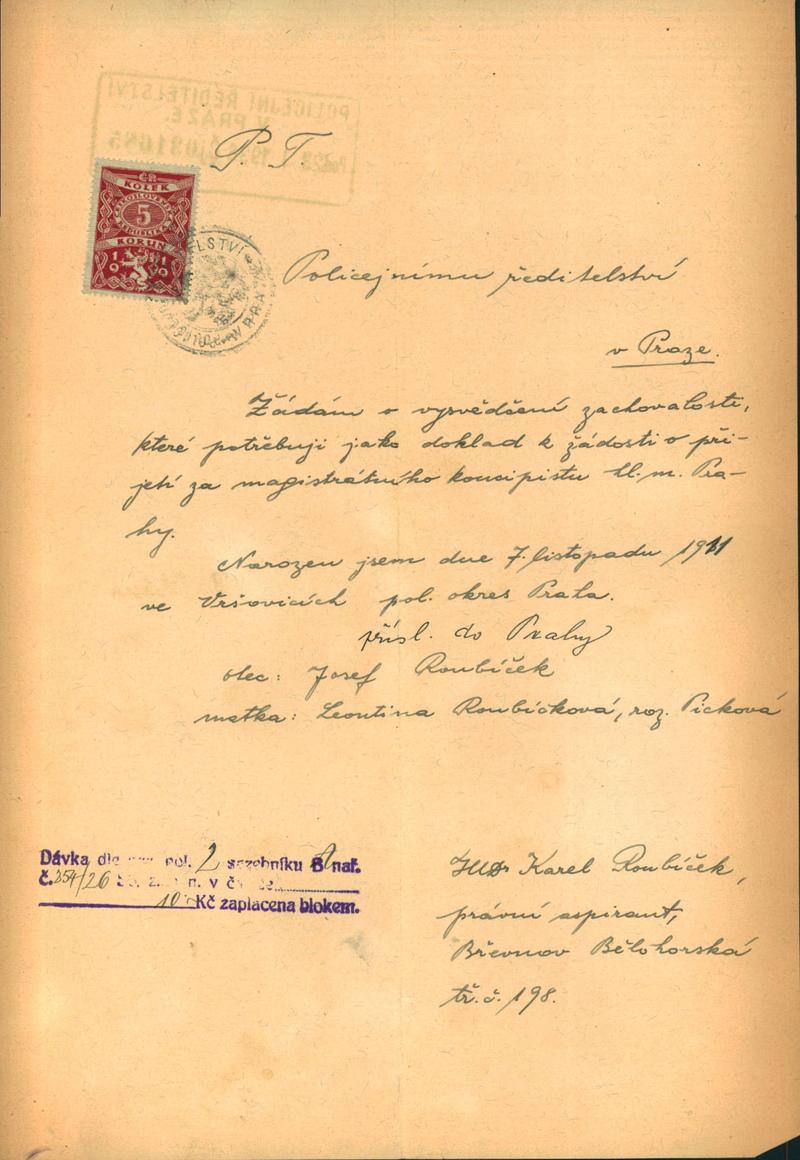 P. T.
ČR
KOLEK
5
KORUN
1919
Policejnímu ředitelství
v Praze.
Žádám o vysvědčení zachovalosti,
které potřebuji jako doklad k žádosti o při-
jetí za magistrátního koncipistu hl. m. Pra-
hy.
Narozen jsem dne 7. listopadu 1911
ve Vršovicích pol. okres Praha.
přísl. do Prahy
otec: Josef Roubíček
matka: Leontina Roubíčková, roz. Picková
Dávka dle pol. 2 sazebníku B nař.
č. 354/26
10 Kč zaplacena blokem.
JUDr Karel Roubíček,
právní aspirant,
Břevnov Bělohorská
tř. č. 198.